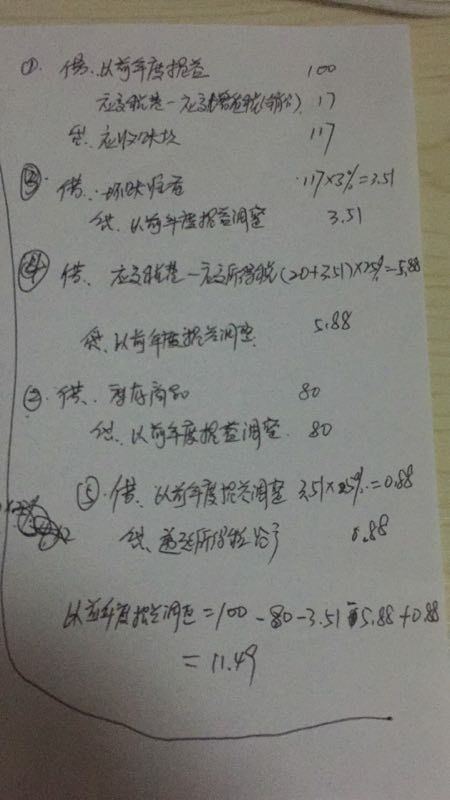 ① 借:以前年度损益 100
应交税费—应交增值税(销项) 17
贷:应收账款 117
③ 借:坏账准备 117×3%=3.51
贷:以前年度损益调整 3.51
④ 借:应交税费—应交所得税(20+3.51)×25%=5.88
贷:以前年度损益调整 5.88
② 借:库存商品 80
贷:以前年度损益调整 80
⑤ 借:以前年度损益调整 3.51×25%=0.88
贷:递延所得税 0.88
以前年度损益调整=100-80-3.51-5.88+0.88
=11.49